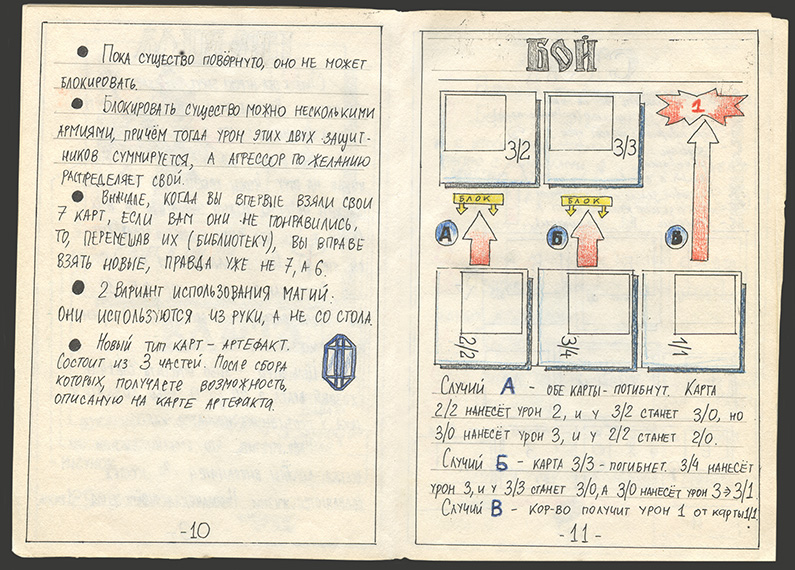 ● Пока существо повёрнуто, оно не может
блокировать.
● Блокировать существо можно несколькими
армиями, причём тогда урон этих двух защит-
ников суммируется, а агрессор по желанию
распределяет свой.
● Вначале, когда вы впервые взяли свои
7 карт, если вам они не понравились,
то, перемешав их (библиотеку), вы вправе
взять новые, правда уже не 7, а 6.
● 2 Вариант использования магий:
они используются из руки, а не со стола.
● Новый тип карт – артефакт.
Состоит из 3 частей. После сбора
которых, получаете возможность
описанную на карте артефакта.
-10
БОЙ
3/2
3/3
1
БЛОК
БЛОК
А
Б
В
2/2
3/4
1/1
Случий А - обе карты - погибнут. Карта
2/2 нанесёт урон 2, и у 3/2 станет 3/0, но
3/0 нанесёт урон 3, и у 2/2 станет 2/0.
Случий Б - карта 3/3 - погибнет. 3/4 нанесёт
урон 3, и у 3/3 станет 3/0, а 3/0 нанесёт урон 3→3/1.
Случий В - кор-во получит урон 1 от карты 1/1.
-11-